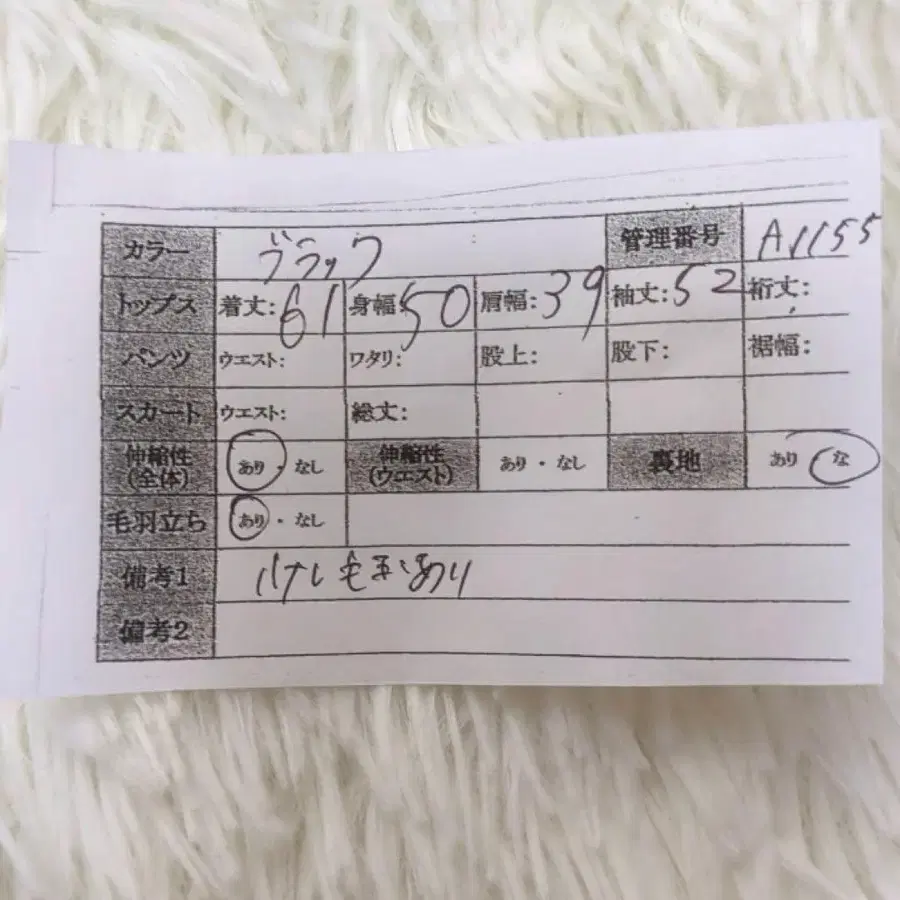 カラー ブラック 管理番号 A1155
トップス 着丈:61 身幅:50 肩幅:39 袖丈:52 裄丈:
パンツ ウエスト: ワタリ: 股上: 股下: 裾幅:
スカート ウエスト: 総丈:
伸縮性(全体) あり・なし 伸縮性(ウエスト) あり・なし 裏地 あり な
毛羽立ち あり・なし
備考1 毛玉あり
備考2